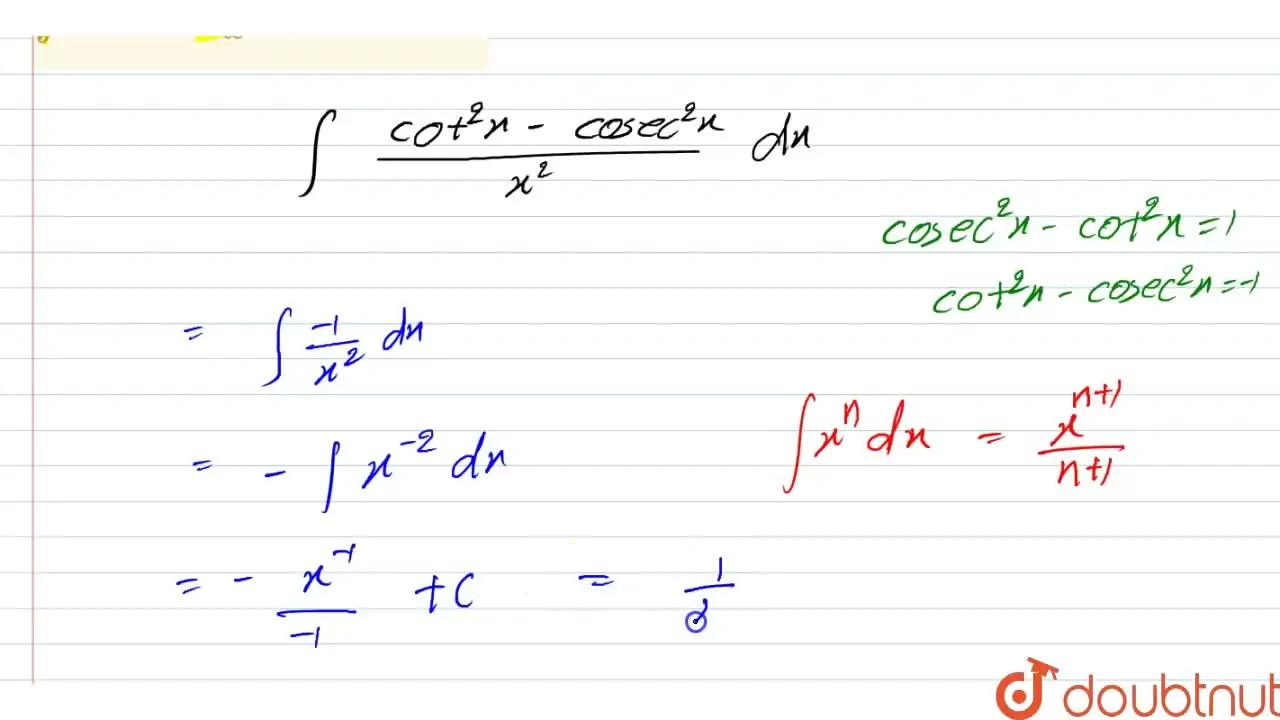 ∫ cot²x - cosec²x / x² dx
cosec²x - cot²x = 1
cot²x - cosec²x = -1
= ∫ -1/x² dx
= - ∫ x⁻² dx
∫ xⁿ dx = xⁿ⁺¹ / n+1
= - x⁻¹ / -1 + C = 1/
doubtnut